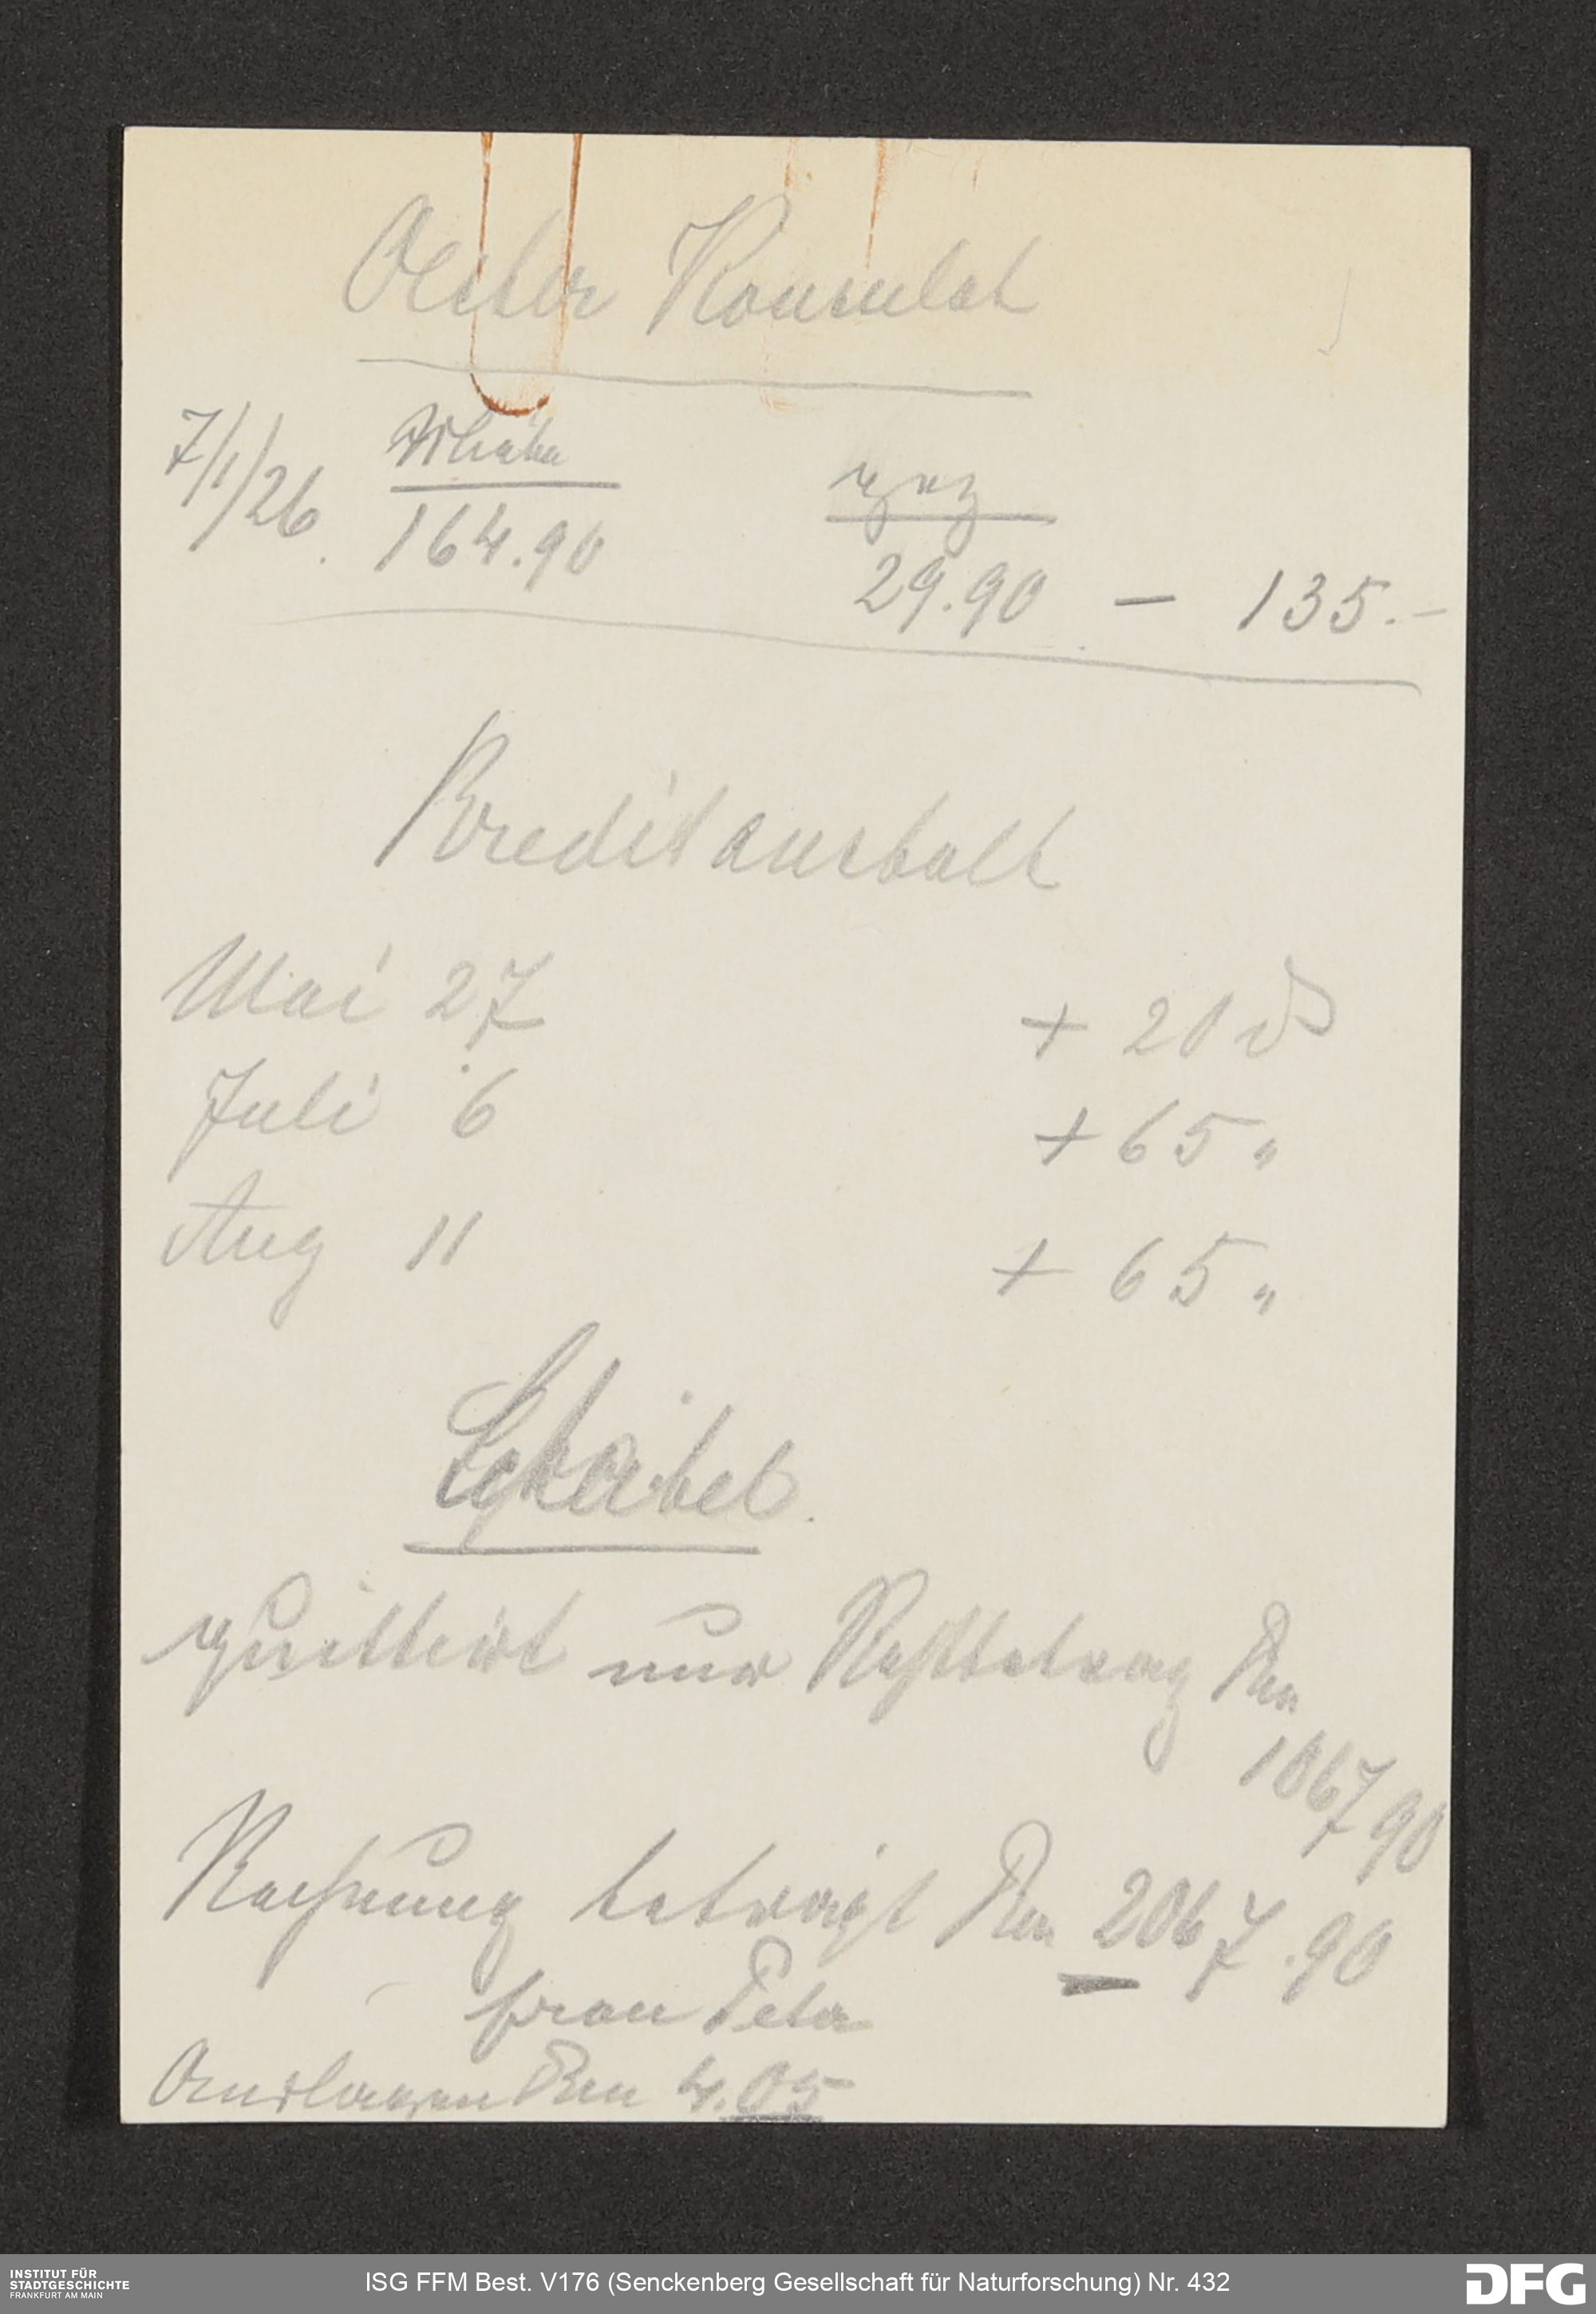 Oester Konsulat
7/1/26.
164.90
29.90 – 135.–
Kreditanstalt
Mai 27 + 20 d
Juli 6 + 65 "
Aug 11 + 65 "
quittiert nur Restbetrag Rm
1067 90
Rechnung beträgt Rm 2067.90
Frau Peta
Auslagen Rm 4.05
INSTITUT FÜR
STADTGESCHICHTE
FRANKFURT AM MAIN
ISG FFM Best. V176 (Senckenberg Gesellschaft für Naturforschung) Nr. 432
DFG